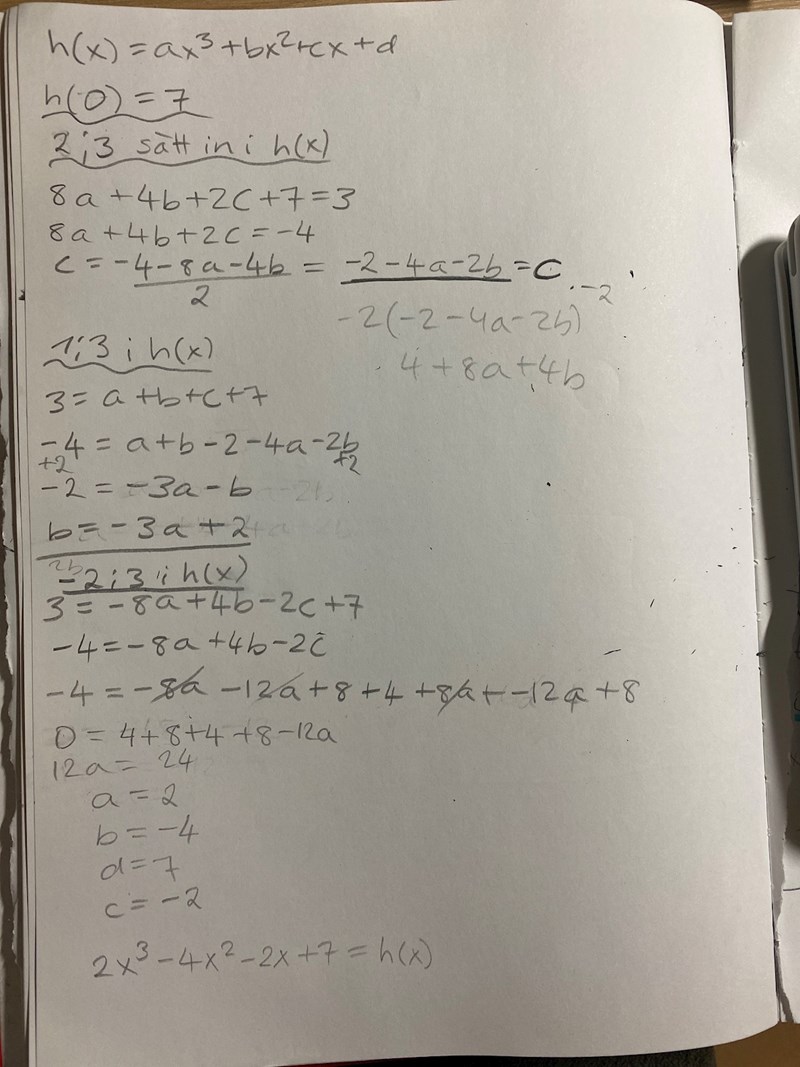 h(x) = ax³+bx²+cx+d
h(0) = 7
2;3 sätt in i h(x)
8a+4b+2c+7=3
8a+4b+2c=-4
c = -4-8a-4b / 2 = -2-4a-2b = c .-2
-2(-2-4a-2b)
4+8a+4b
1;3 i h(x)
3 = a+b+c+7
-4 = a+b-2-4a-2b
+2 +2
-2 = -3a-b
b = -3a+2
2b
-2;3 i h(x)
3 = -8a+4b-2c+7
-4 = -8a+4b-2c
-4 = -8a -12a+8+4+8a+-12a+8
0 = 4+8+4+8-12a
12a = 24
a = 2
b = -4
d = 7
c = -2
2x³-4x²-2x+7 = h(x)